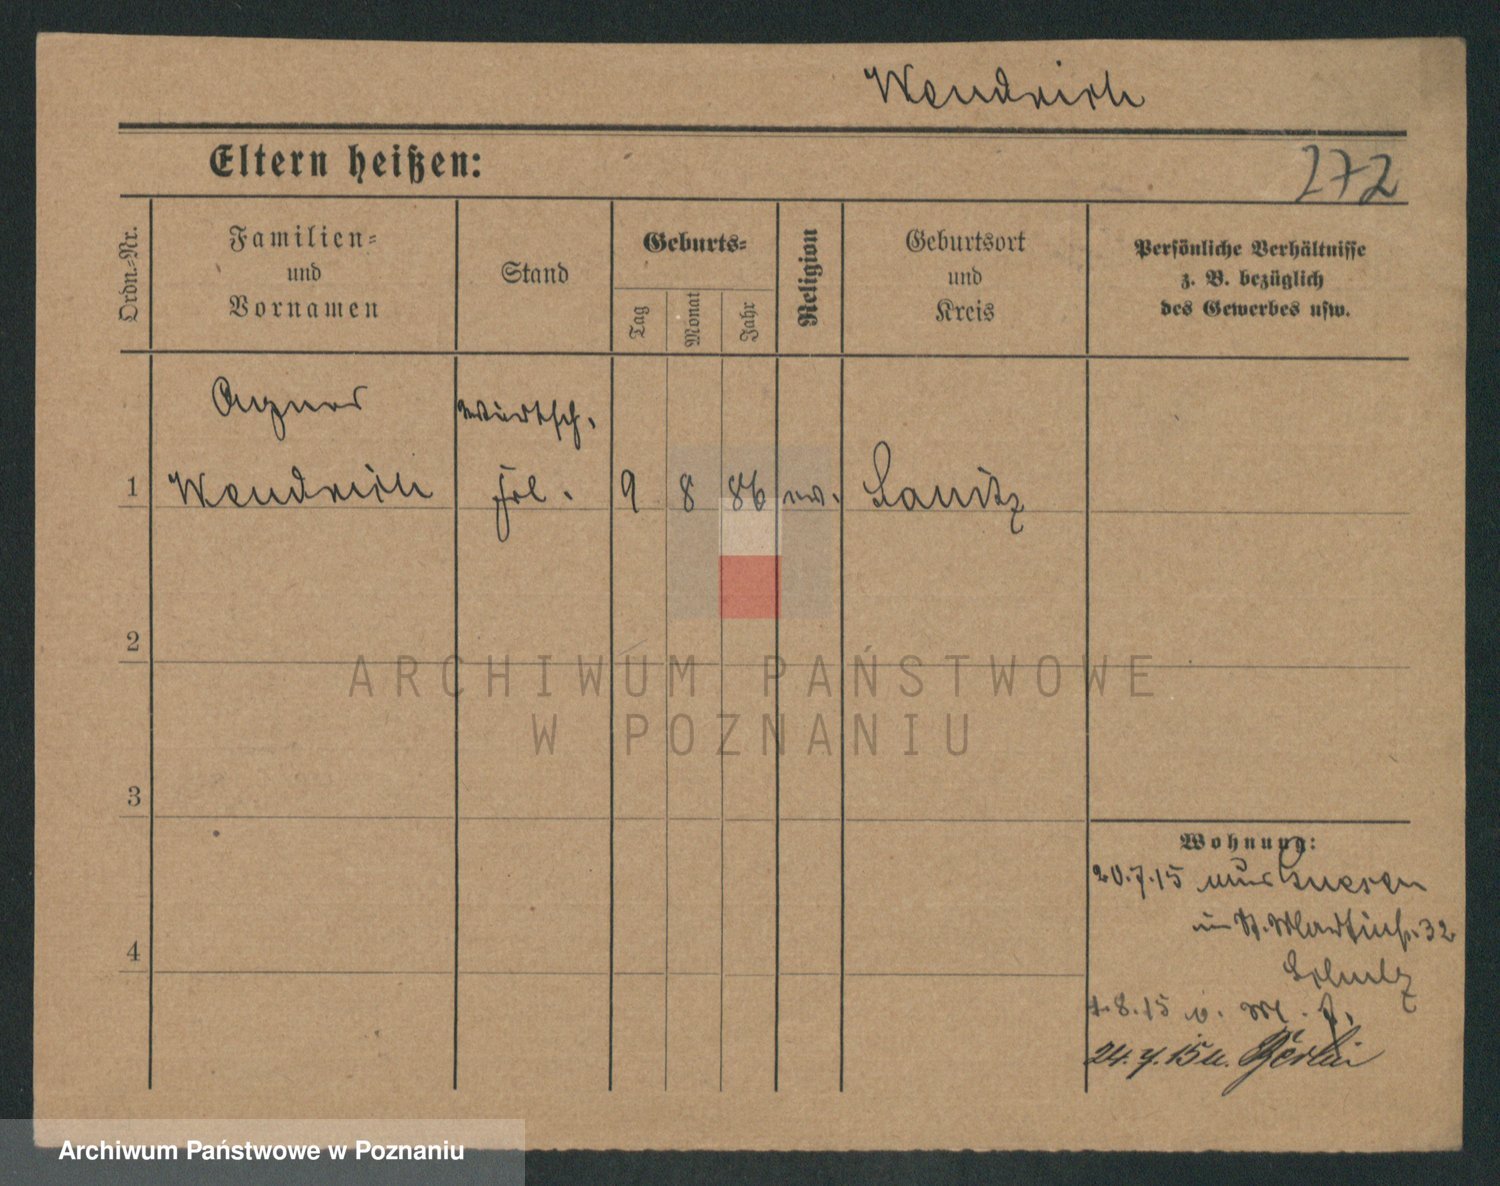 Wendrich
Eltern heißen:
272
Ordn.-Nr.
Familien-
und
Vornamen
Stand
Geburts-
Tag
Monat
Jahr
Religion
Geburtsort
und
Kreis
Persönliche Verhältnisse
z. B. bezüglich
des Gewerbes usw.
Agnes
Wirtsch.
1 Wendrich Frl. 9 8 86 ev. Lanitz
2
3
4
Wohnung:
20.7.15 aus Gnesen
in St. Martinstr. 32
Schulz
24.7.15 n. Berlin
ARCHIWUM PAŃSTWOWE
W POZNANIU
Archiwum Państwowe w Poznaniu